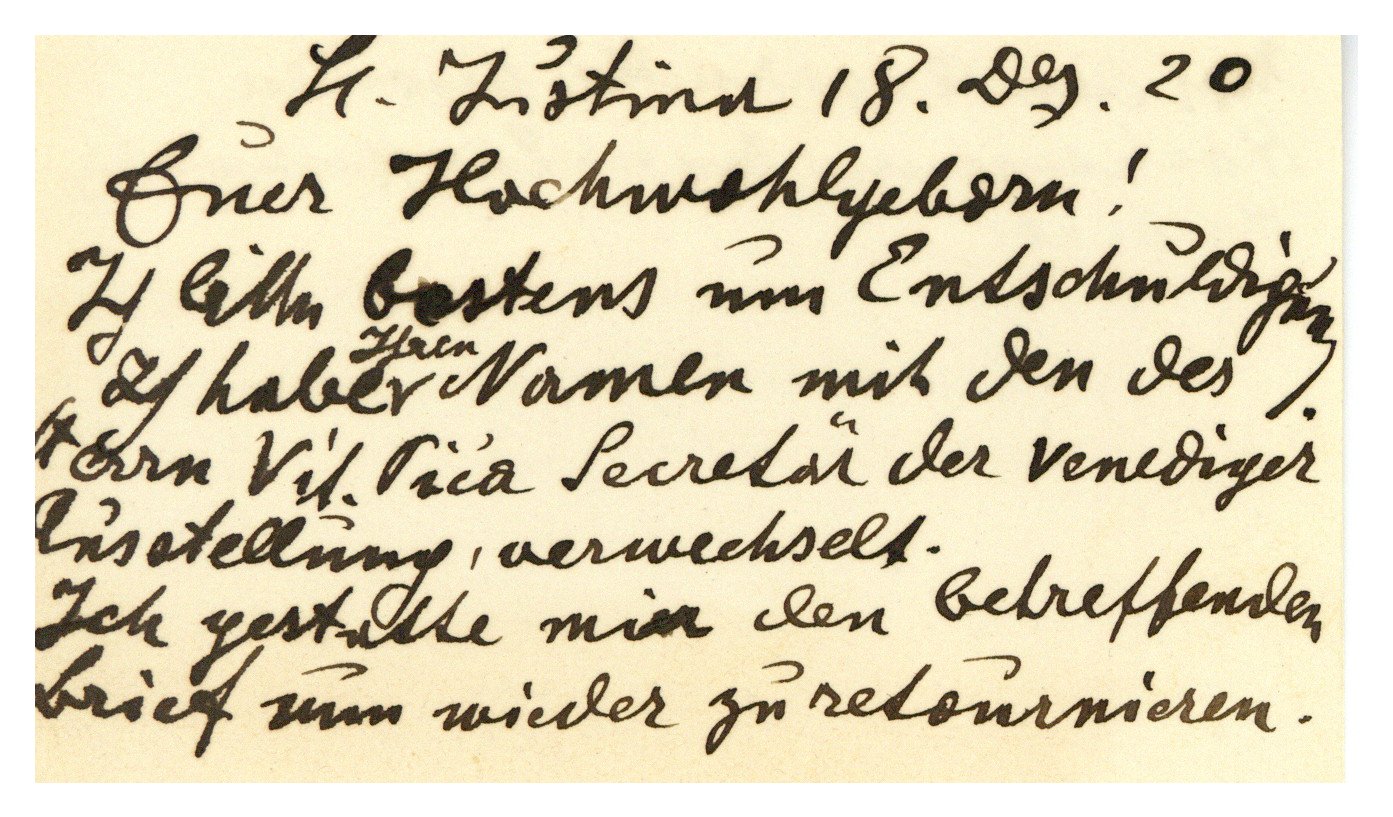 St. Justina 18. Dez. 20
Euer Hochwohlgeborn!
Ich bitte bestens um Entschuldigung
Ich habe Ihren Namen mit den des
Herrn Vit. Pica Secretär der Venediger
Ausstellung, verwechselt.
Ich gestatte mir den betreffenden
brief nun wieder zu retournieren.